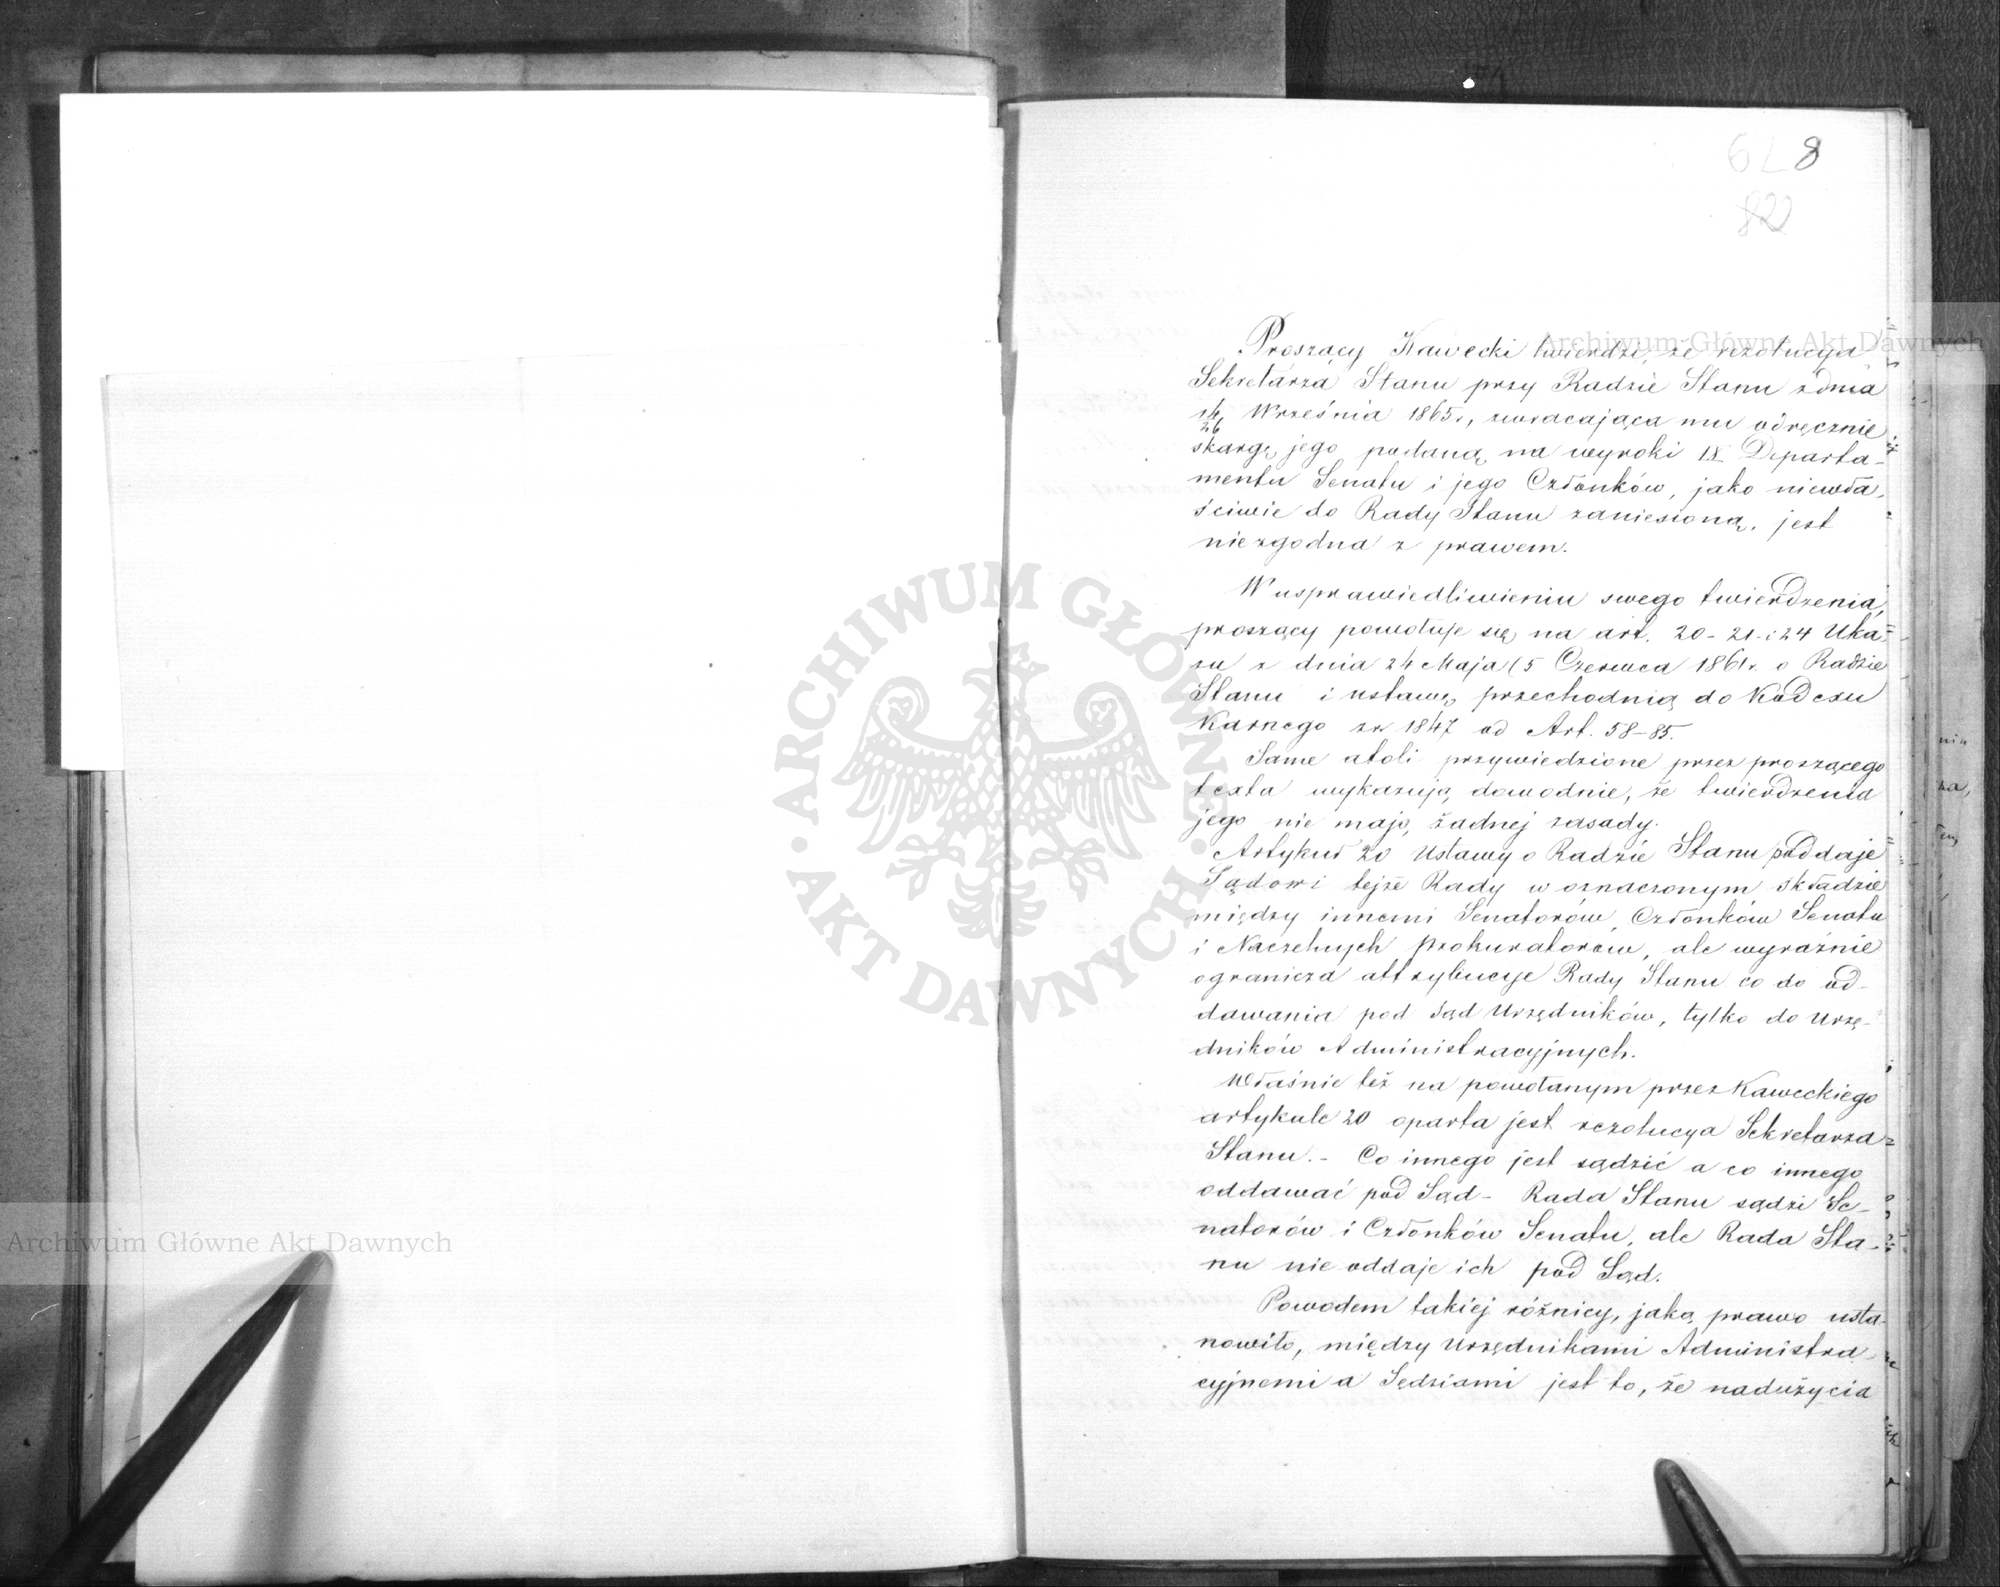 8
82
Proszący Kawecki twierdzi, że rezolucya
Sekretarza Stanu przy Radzie Stanu z dnia
14/26 Września 1865 r., zwracająca mu odręcznie
skargę jego podaną na wyroki IX Departa-
mentu Senatu i jego Członków, jako niewła-
ściwie do Rady Stanu zaniesioną, jest
niezgodna z prawem.
W usprawiedliwieniu swego twierdzenia,
proszący powołuje się na art. 20-21-i 24 Uka-
zu z dnia 24 Maja (5 Czerwca 1861 r. o Radzie
Stanu i ustawę przechodnią do Kodexu
Karnego z r. 1847 od Art. 58-85.
Same atoli przywiedzione przez proszącego
texta wykazują dowodnie, że twierdzenia
jego nie mają żadnej zasady.
Artykuł 20 Ustawy o Radzie Stanu poddaje
Sądowi tejże Rady w oznaczonym składzie
między innemi Senatorów, Członków Senatu
i Naczelnych Prokuratorów, ale wyraźnie
ogranicza attrybucye Rady Stanu co do od-
dawania pod Sąd Urzędników, tylko do Urzę-
dników Administracyjnych.
Właśnie też na powołanym przez Kaweckiego
artykule 20 oparta jest rezolucya Sekretarza
Stanu.- Co innego jest sądzić a co innego
oddawać pod Sąd- Rada Stanu sądzi Se-
natorów i Członków Senatu, ale Rada Sta-
nu nie oddaje ich pod Sąd.
Powodem takiej różnicy, jaką prawo usta-
nowiło, między Urzędnikami Administra-
cyjnemi a Sędziami jest to, że nadużycia
Archiwum Główne Akt Dawnych
ARCHIWUM GŁÓWNE
AKT DAWNYCH
Archiwum Główne Akt Dawnych